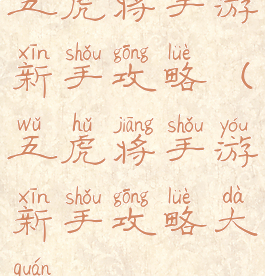 五虎将手游
xīn shǒu gōng lüè
新手攻略（
wǔ hǔ jiāng shǒu yóu
五虎将手游
xīn shǒu gōng lüè dà
新手攻略大
quán